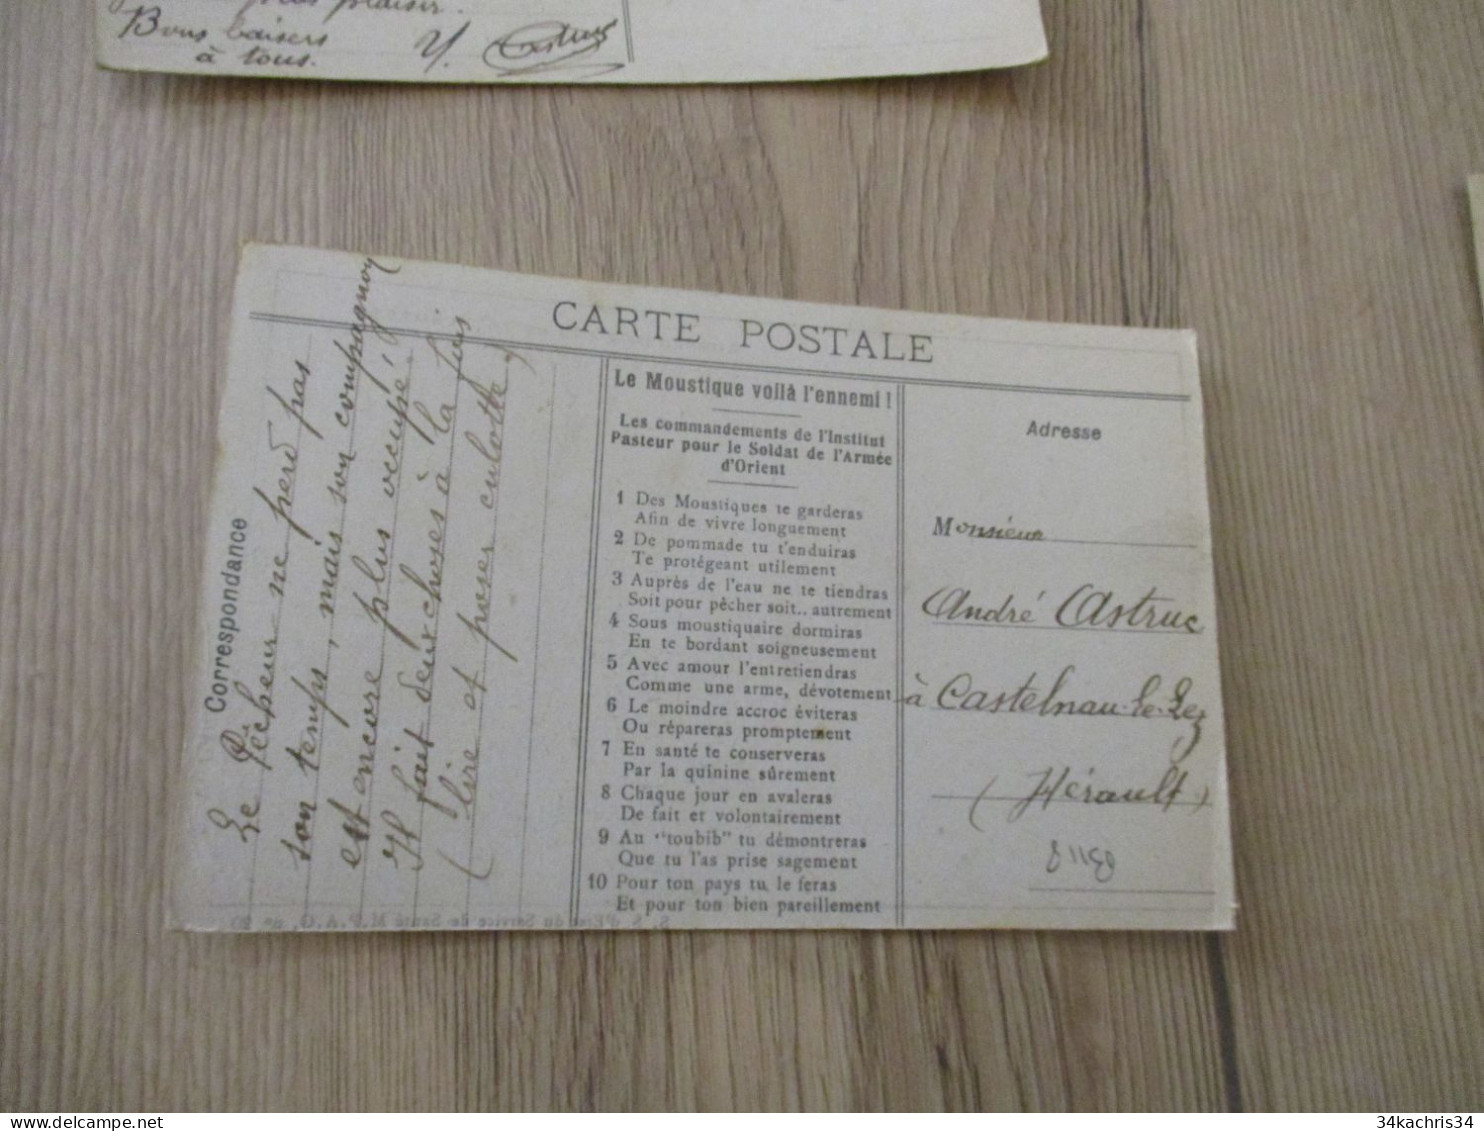 plus plaisir.
Bons baisers
à tous.
Y. Castruc
CARTE POSTALE
Correspondance
Le Pêcheur ne perd pas
son temps, mais son compagnon
est encore plus occupé!
Il fait deux choses à la fois
(lire et poser culotte)
Le Moustique voilà l'ennemi !
Les commandements de l'Institut
Pasteur pour le Soldat de l'Armée
d'Orient
1 Des Moustiques te garderas
Afin de vivre longuement
2 De pommade tu t'enduiras
Te protégeant utilement
3 Auprès de l'eau ne te tiendras
Soit pour pêcher soit.. autrement
4 Sous moustiquaire dormiras
En te bordant soigneusement
5 Avec amour l'entretiendras
Comme une arme, dévotement
6 Le moindre accroc éviteras
Ou répareras promptement
7 En santé te conserveras
Par la quinine sûrement
8 Chaque jour en avaleras
De fait et volontairement
9 Au "toubib" tu démontreras
Que tu l'as prise sagement
10 Pour ton pays tu le feras
Et pour ton bien pareillement
Adresse
Monsieur
André Castruc
à Castelnau-le-Lez
(Hérault)
34kachris34